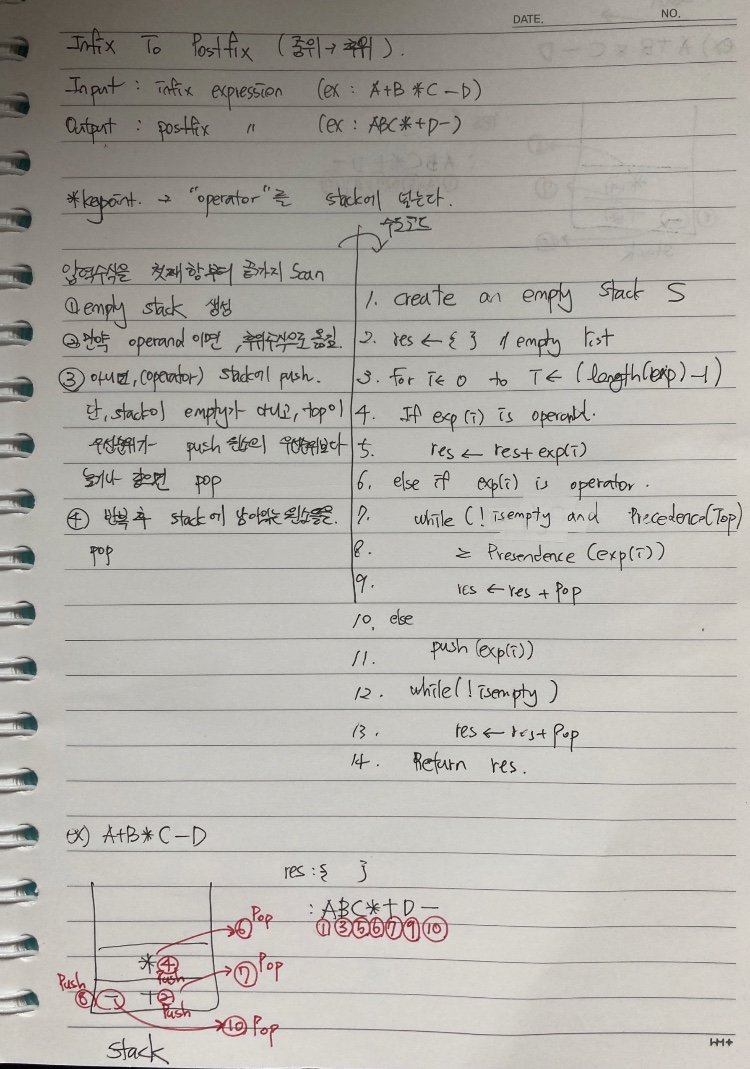 DATE. NO.
Infix To Postfix (중위→후위).
Input : infix expression (ex : A+B*C-D)
Output : postfix 〃 (ex : ABC*+D-)
*keypoint. → "operator"를 stack에 넣는다.
수도코드
입력수식을 첫째항부터 끝까지 Scan
① empty stack 생성
② 만약 operand 이면, 후위수식으로 옮김.
③ 아니면, (operator) stack에 push.
단, stack이 empty가 아니고, top이
우선순위가 push 원소의 우선순위보다
높거나 같으면 pop
④ 반복 후 stack에 남아있는 원소들을.
pop
1. create an empty stack S
2. res ← { } // empty list
3. for i← 0 to i ← (length(exp) -1)
4. If exp(i) is operand.
5. res ← res+ exp(i)
6. else if exp(i) is operator.
7. while (! isempty and Precedence(Top)
8. ≥ Presendence (exp(i))
9. res ← res + Pop
10. else
11. push (exp(i))
12. while(! isempty )
13. res ← res+ Pop
14. Return res.
ex) A+B*C-D
res : { }
: ABC*+D-
① ③ ⑤ ⑥ ⑦ ⑨ ⑩
⑥ Pop
* ④
Push
⑦ Pop
Push
⑧ - + ②
Push
⑩ Pop
Stack